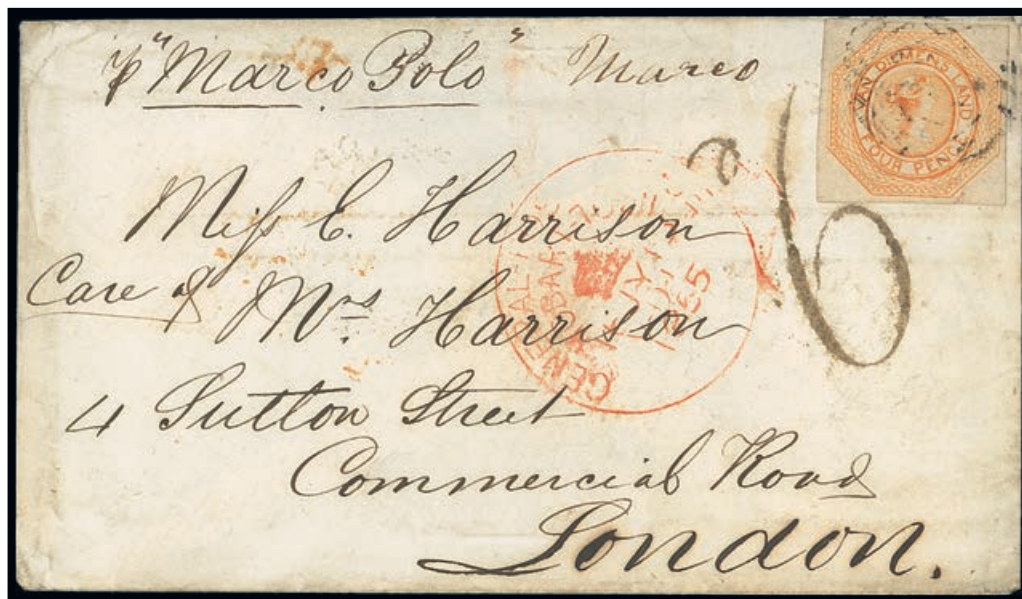 ℘ "Marco Polo" Marco
VAN DIEMENS LAND
FOUR PENCE
Miss E. Harrison
Care of Mrs Harrison
4 Sutton Street
Commercial Road
London.
6
GENERAL
1855